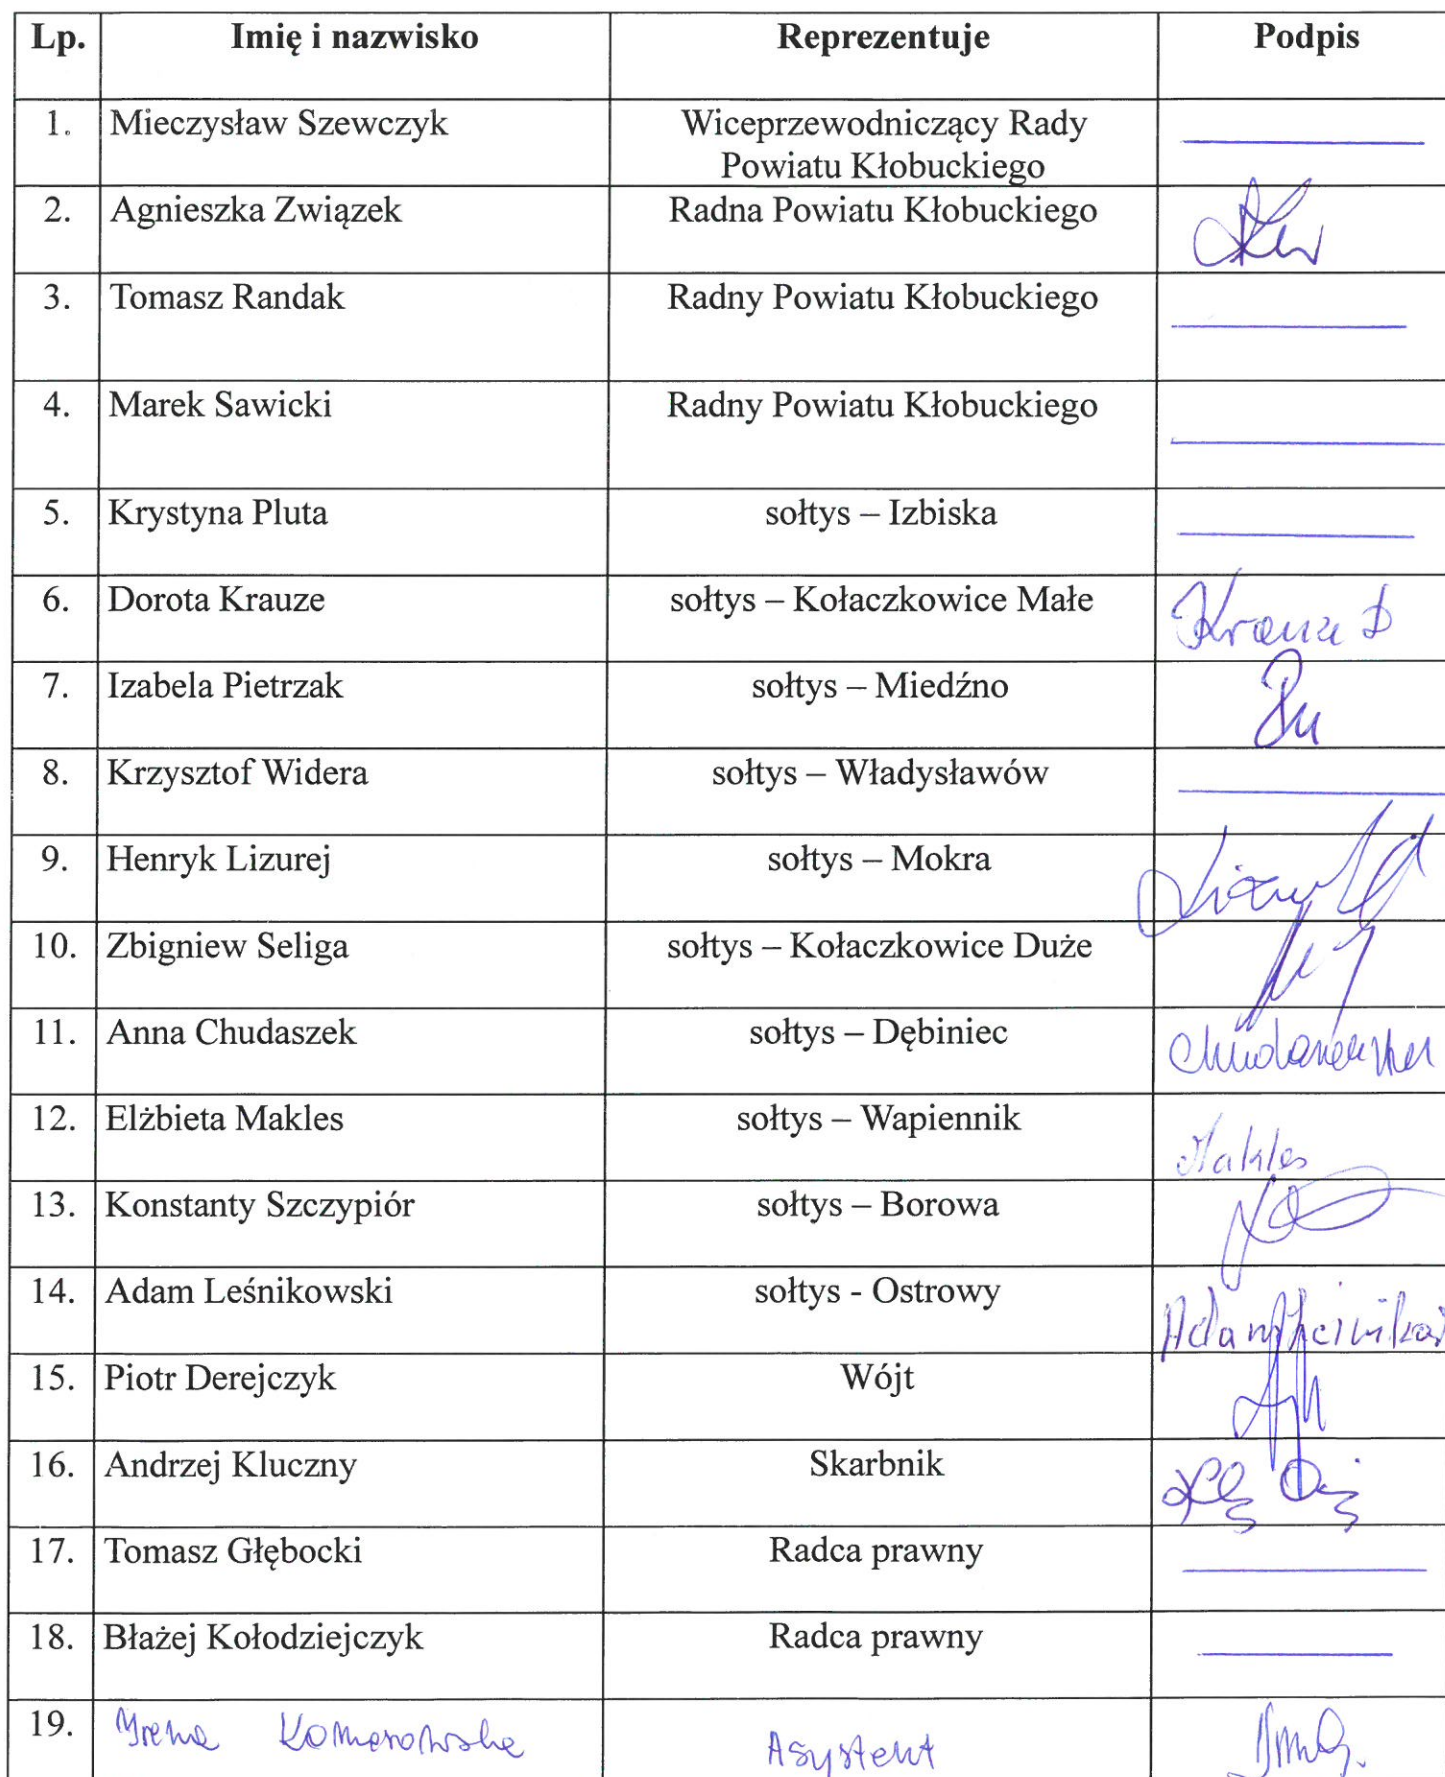 Lp. Imię i nazwisko Reprezentuje Podpis
1. Mieczysław Szewczyk Wiceprzewodniczący Rady
Powiatu Kłobuckiego
2. Agnieszka Związek Radna Powiatu Kłobuckiego
3. Tomasz Randak Radny Powiatu Kłobuckiego
4. Marek Sawicki Radny Powiatu Kłobuckiego
5. Krystyna Pluta sołtys – Izbiska
6. Dorota Krauze sołtys – Kołaczkowice Małe Krauze D
7. Izabela Pietrzak sołtys – Miedźno
8. Krzysztof Widera sołtys – Władysławów
9. Henryk Lizurej sołtys – Mokra
10. Zbigniew Seliga sołtys – Kołaczkowice Duże
11. Anna Chudaszek sołtys – Dębiniec
12. Elżbieta Makles sołtys – Wapiennik Makles
13. Konstanty Szczypiór sołtys – Borowa
14. Adam Leśnikowski sołtys - Ostrowy Adam
15. Piotr Derejczyk Wójt
16. Andrzej Kluczny Skarbnik
17. Tomasz Głębocki Radca prawny
18. Błażej Kołodziejczyk Radca prawny
19. Irena Komorowska Asystent